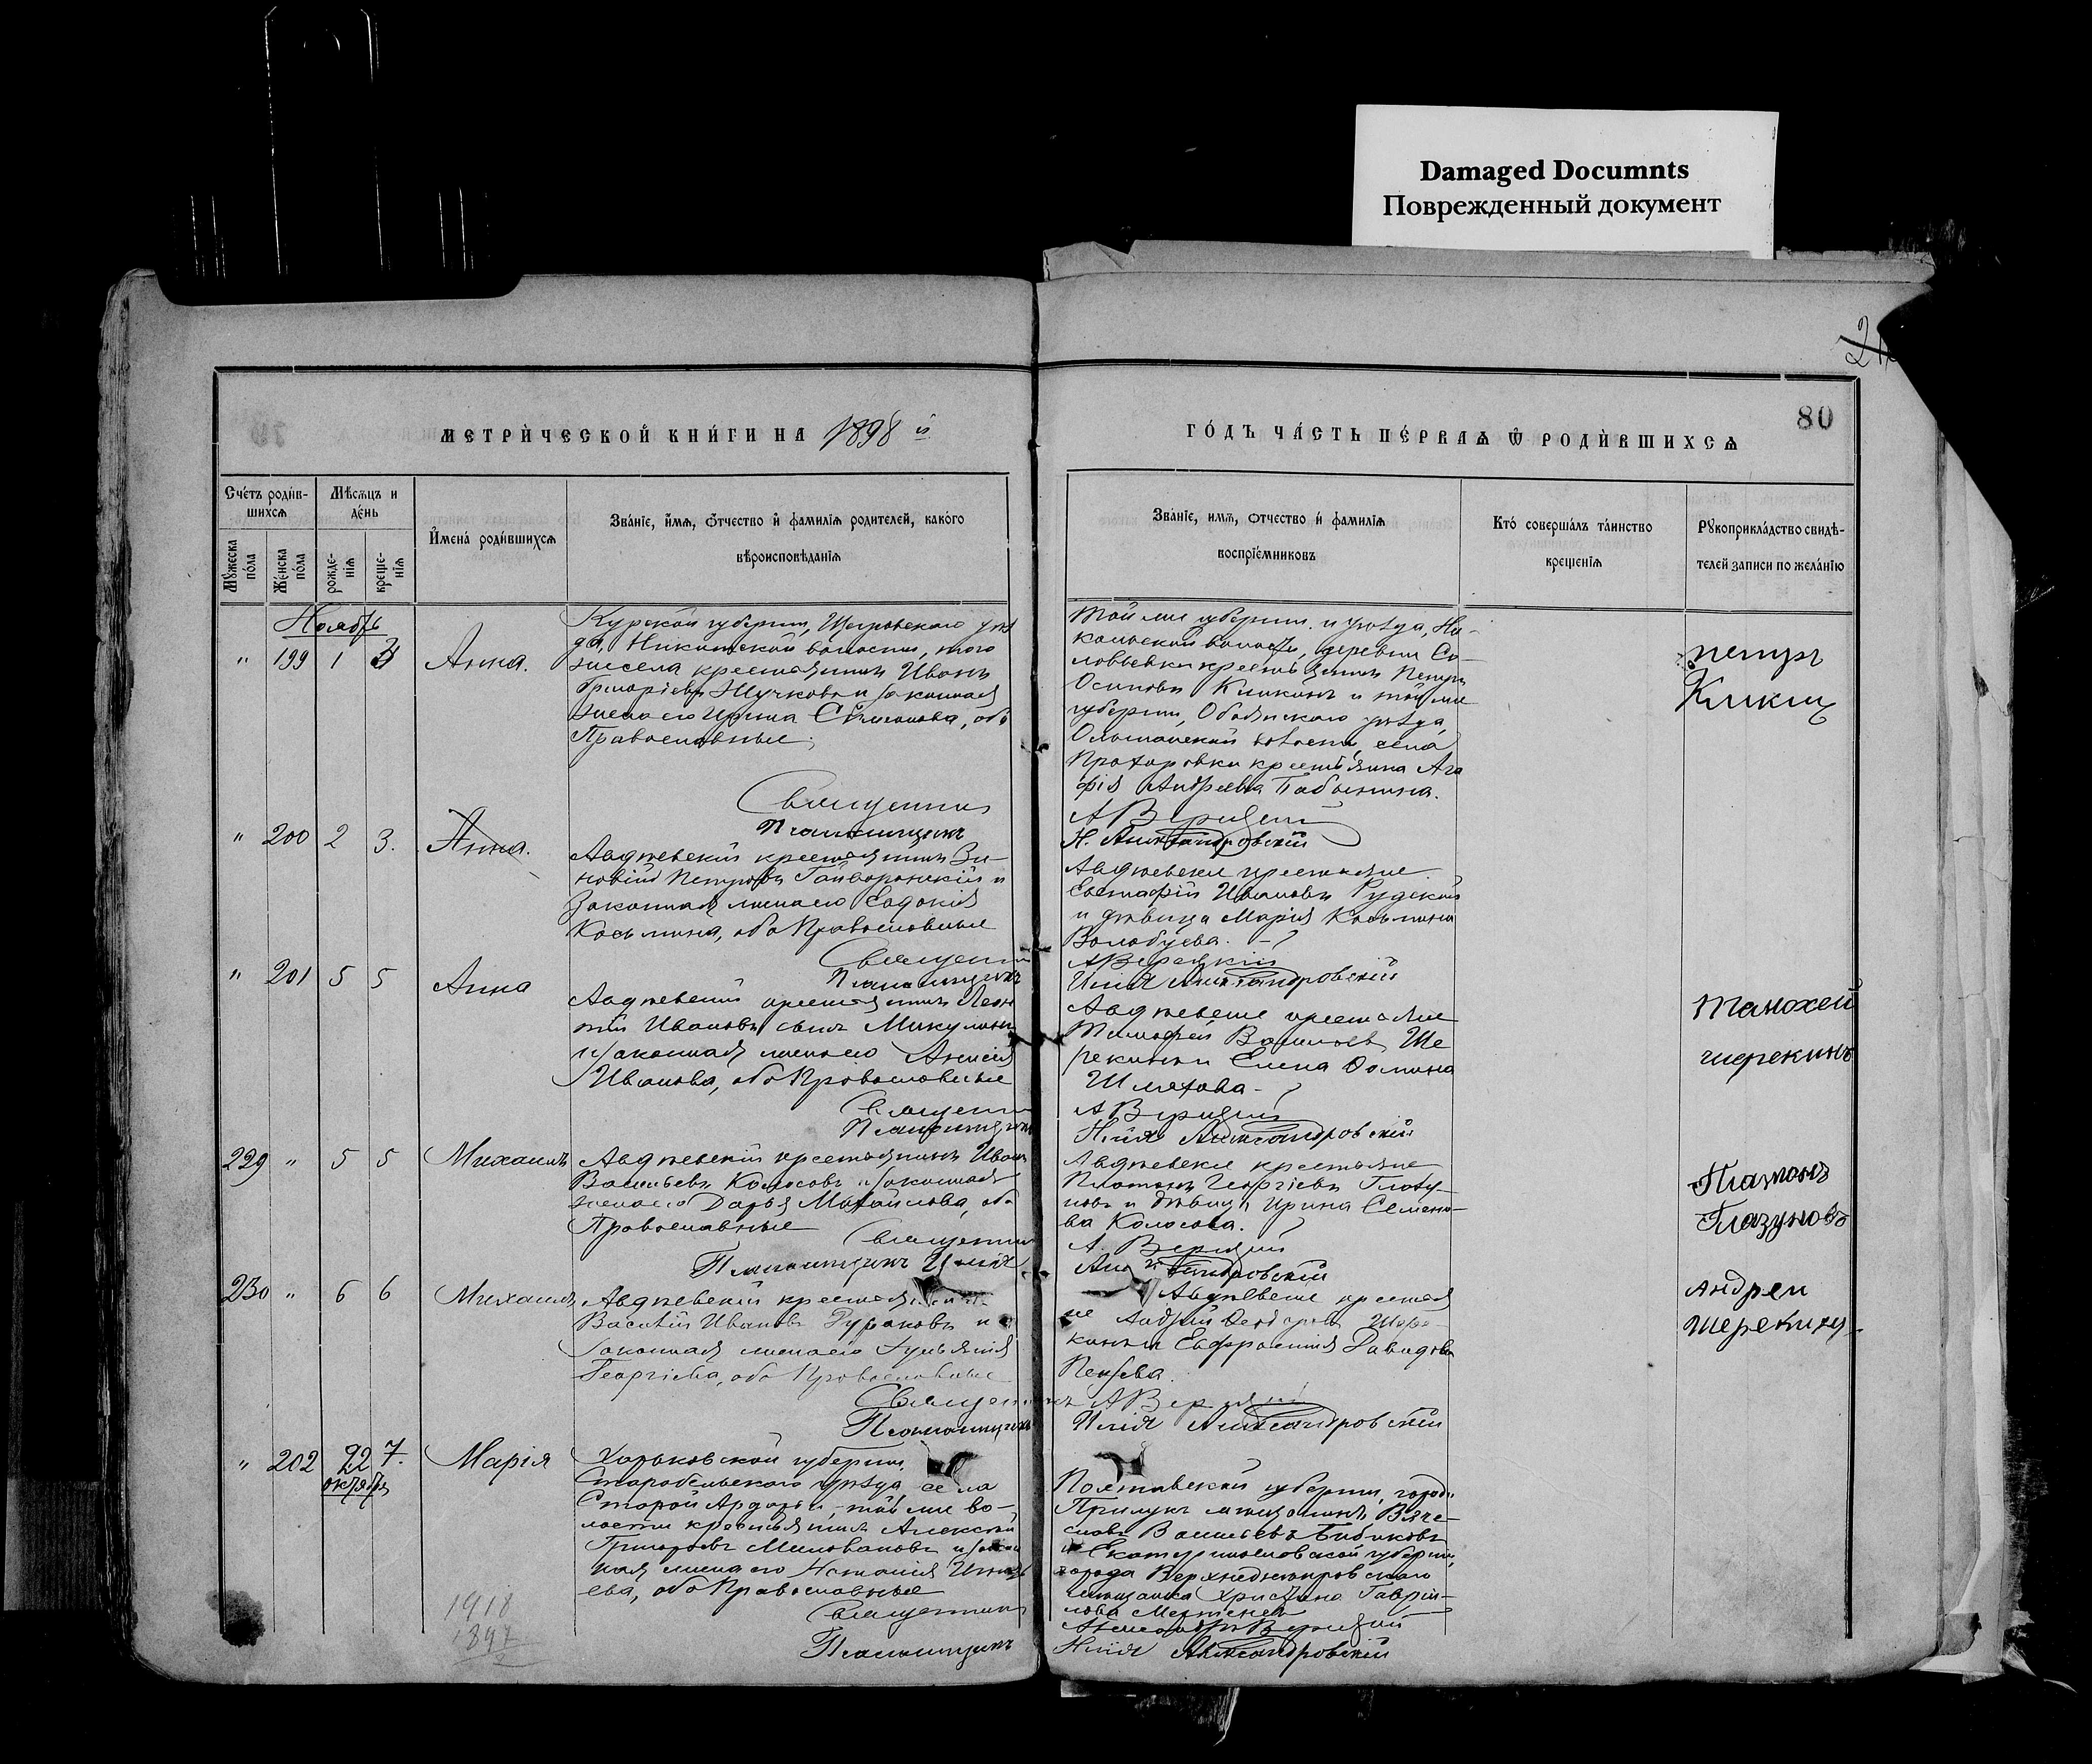 Damaged Documnts
Поврежденный документ
80
МЕТРИ́ЧЕСКОЙ КНИ́ГИ НА 1898 й
ГО́ДЪ ЧА́СТЬ ПЕ́РВАѦ Ѡ РОДИ́ВШИХСѦ
Сче́тъ роди́в-
шихсѧ
Мѣсѧцъ и
де́нь
Мꙋ́жеска по́ла
Же́нска по́ла
рожде́-
нїѧ
креще́-
нїѧ
И҆мена̀ роди́вшихсѧ
Зва́нїе, и҆́мѧ, ѻ҆́тчество и҆ фами́лїѧ роди́телей, како́го
вѣроисповѣ́данїѧ
Зва́нїе, имѧ, ѻтчество и҆ фами́лїѧ
воспрїе́мниковъ
Кто̀ соверша́лъ та́инство
креще́нїѧ
Рꙋкоприкла́дство свидѣ́-
телей записи по жела́нїю
Ноябрь
" 199 1 3 Анна.
Курской губерніи, Щигровскаго уѣз
да, Никитской волости, того
же села крестьянинъ Иванъ
Григорьевъ Жучковъ и законная
жена его Ирина Симонова, оба
Православные
Той же губерніи и уѣзда, Ни-
кольской волости, деревни Со-
ловьевки крестьянинъ Петръ
Осиповъ Кликинъ и той же
губерніи, Обоянскаго уѣзда,
Ольшанской волости, села
Прохоровки крестьянка Ага
фія Андреева Бабынина.
Петръ
Кикин
Священникъ
А Верицкій
Псаломщикъ
И. Александровскій
" 200 2 3. Анна.
Авдѣевскій крестьянинъ Зи-
новій Петровъ Гайворонскій и
законная жена его Евдокія
Косьмина, оба Православные
Авдѣевскіе крестьяне
Евстафій Ивановъ Рудскій
и дѣвица Марія Косьмина
Волобуева.
Священник
А Верицкій
Псаломщикъ
Илія Александровскій
" 201 5 5 Анна
Авдѣевскій крестьянинъ Леон
тій Ивановъ сынъ Микулинъ
и законная жена его Анисія
Иванова, оба Православные
Авдѣевскіе крестьяне
Тимофей Васильевъ Ше
рекинъ и Елена Фомина
Шляхова
Тамохей
шерекинъ
Священник
А Верицкій
Псаломщикъ
Илія Александровскій
229 " 5 5 Михаилъ
Авдѣевскій крестьянинъ Иванъ
Васильевъ Колосовъ и законная
жена его Дарья Михайлова, оба
Православные
Авдѣевскіе крестьяне
Платонъ Георгіевъ Глазу-
новъ и дѣвица Ирина Семено-
ва Колосова.
Платонъ
Глазуновъ
Священник
А. Верицкій
Псаломщикъ Илія
Александровскій
230 " 6 6 Михаилъ
Авдѣевскій крестьянинъ
Василій Ивановъ и
законная жена его
Георгіева, оба Православные
Авдѣевскіе крестья
не Андрей Феодоровъ Шере-
кинъ и Евфросинія Давидова
Пензева.
Андреи
Шерекинъ
Священникъ А Верицкій
Псаломщикъ
Илія Александровскій
" 202 22 7. Марія
октября
Харьковской губерніи,
Старобельскаго уѣзда, села
Старой Айдары, той же во-
лости крестьянинъ Алексѣй
Григорьевъ Миловановъ и закон
ная жена его Наталія Игнать
ева, оба Православные
Полтавской губерніи, города
Прилукъ мѣщанинъ Вяче-
славъ Васильевъ Бибиковъ
и Екатеринославской губерніи,
города Верхнеднѣпровскаго
мѣщанка Христина Гаврии-
лова
Священникъ
Александръ Верицкій
Псаломщикъ
Илія Александровскій
1918
1897